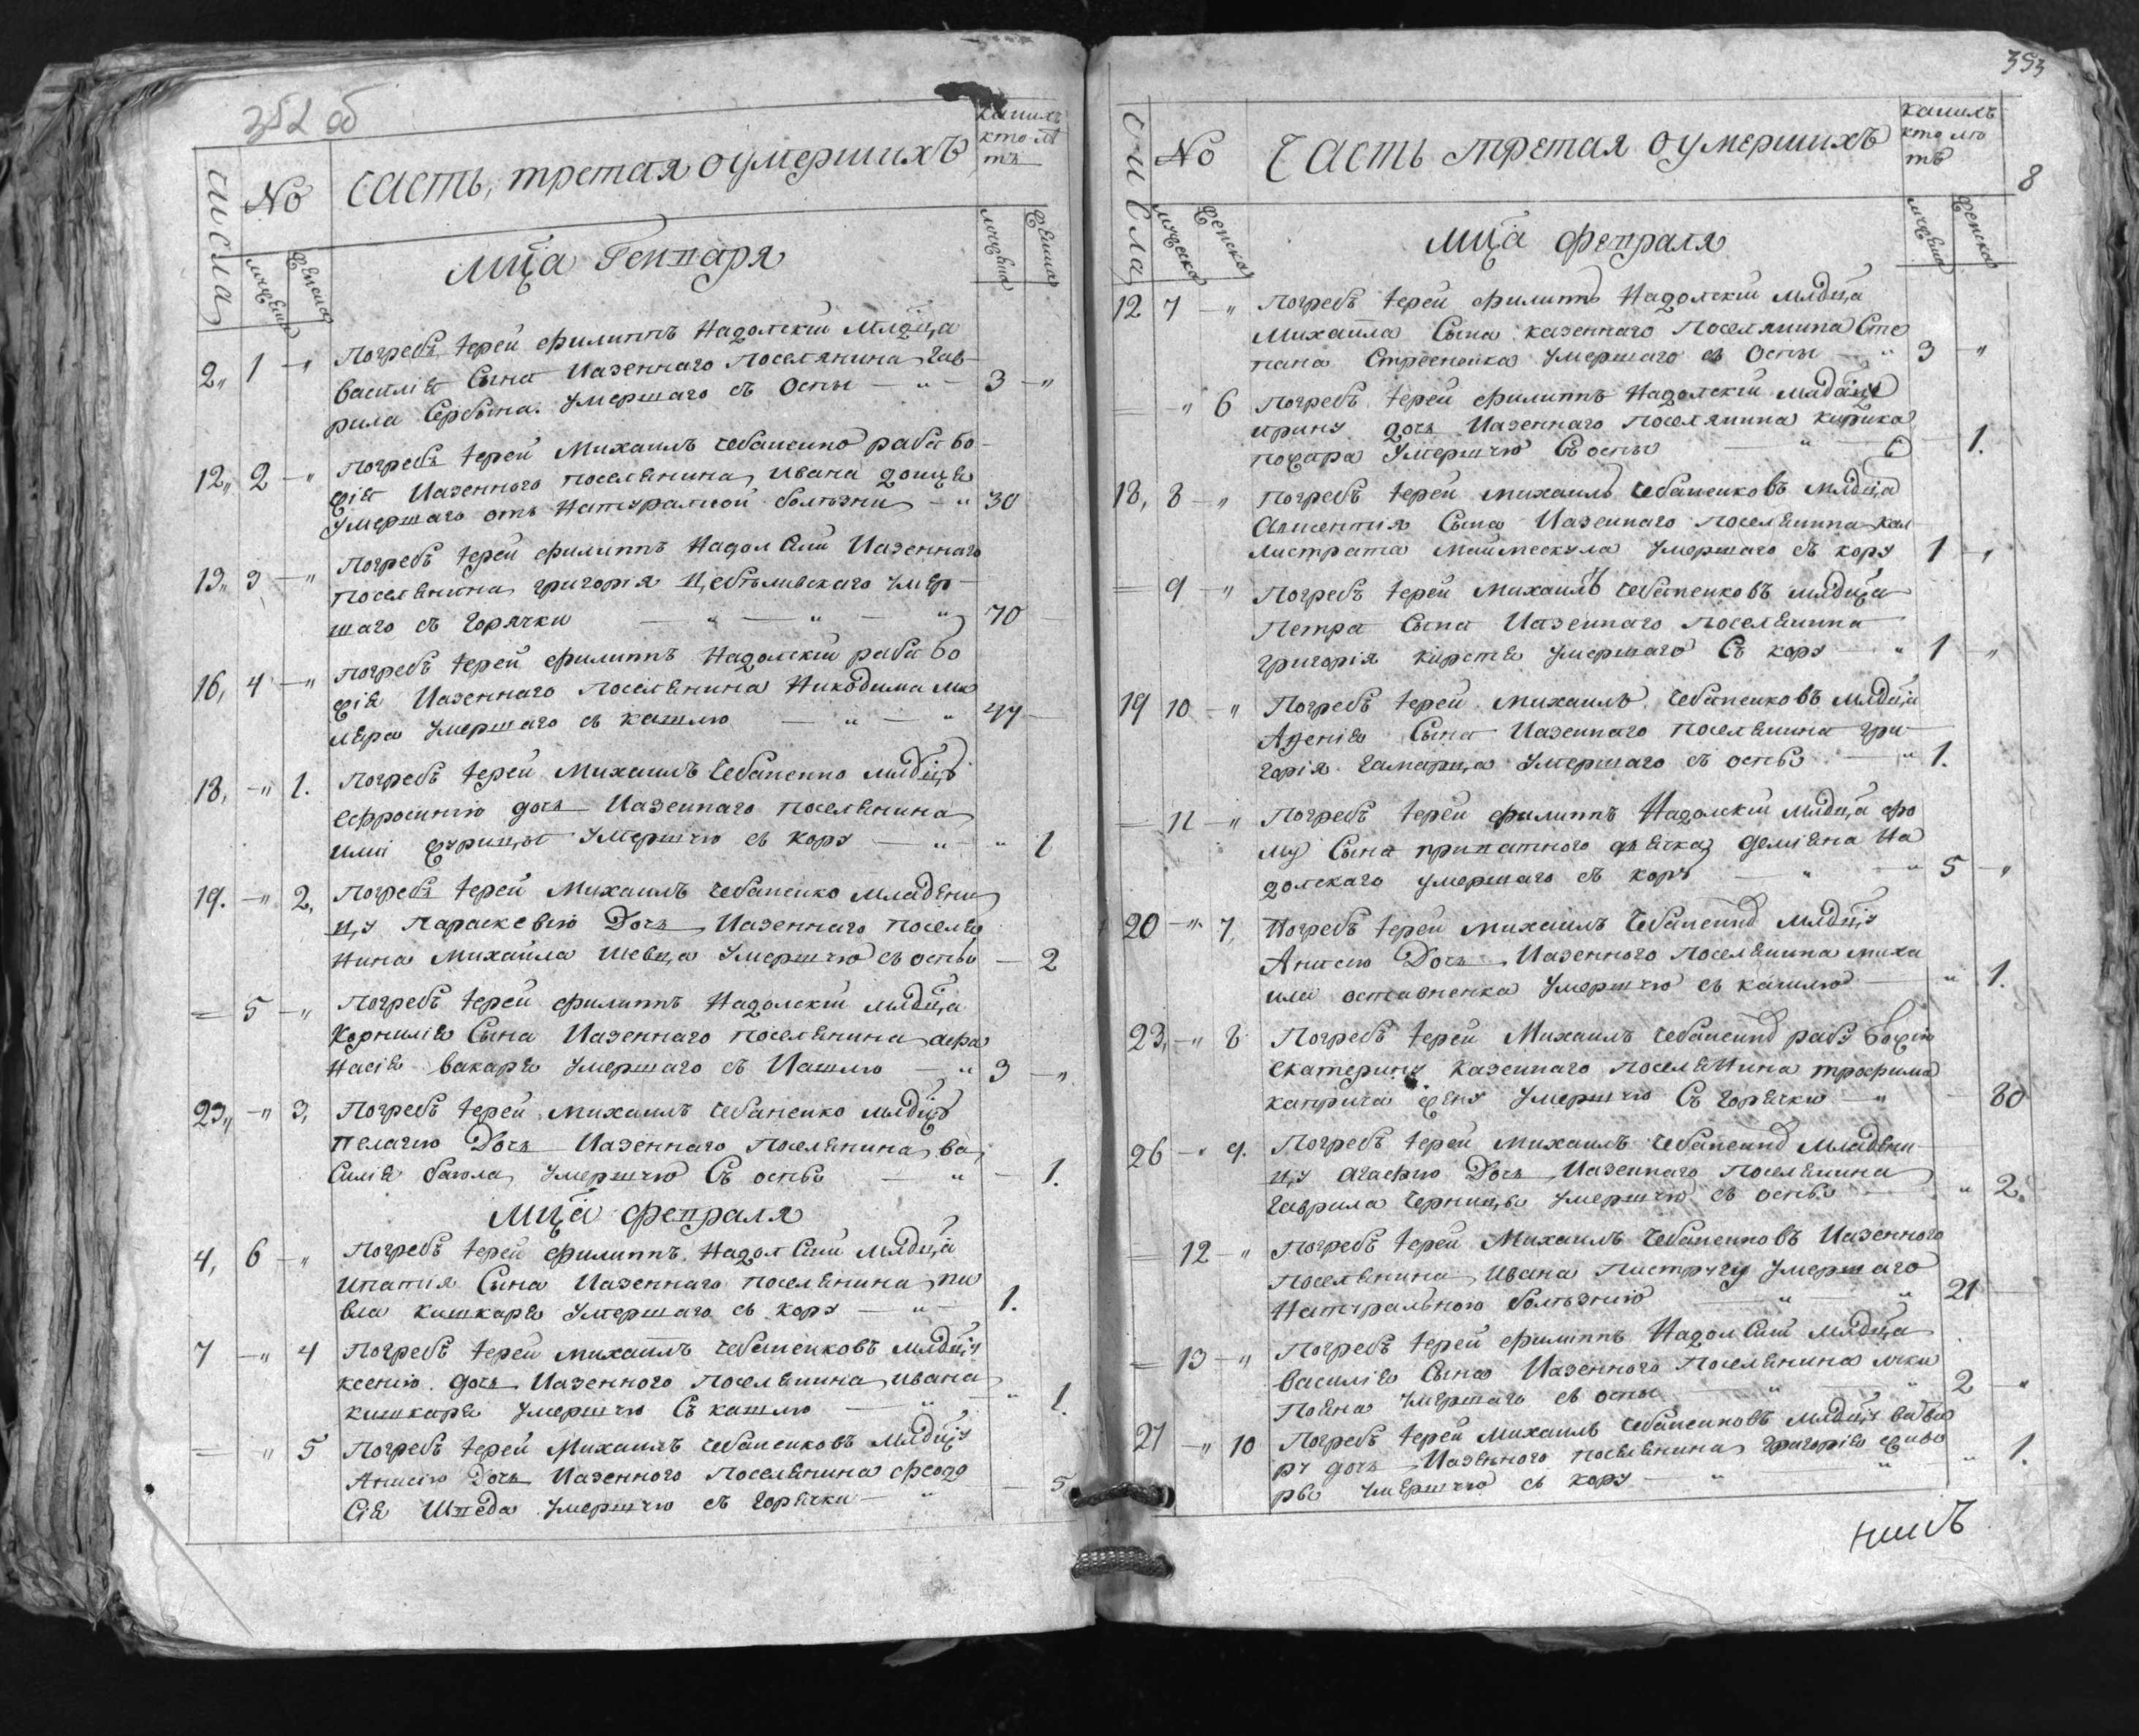 352 об
числа
No
часть, третая оумершихъ
каких
кто лѣ
тъ
мужеска
женска
мужеска
женска
мц҃а Генваря
2,, 1 — „ Погребъ іерей филиппъ Надолскій младца
василія Сына Казеннаго поселянина Гав-
рила Сербина. умершаго съ оспы — „ — 3 — „
12,, 2 — „ Погребъ іерей Михаилъ чебаненко раба бо-
жія Казенного поселянина Ивана донця
умершаго отъ Натуралной болѣзни — „ 30
13,, 3 — „ Погребъ іерей филиппъ Надолскій Казеннаго
поселянина григорія Цебѣливскаго умер-
шаго съ горячки — „ — „ — „ 70
16, 4 — „ погребъ іерей филиппъ Надолскій раба бо
жія Казеннаго поселянина Никодима ми
лера умершаго съ кашлю — „ — „ 44
18, — „ 1. Погребъ іерей Михаилъ Чебаненко младцъ
ефросинію дочь Казеннаго поселянина
умершую съ кору — „ — „ 1
19. — „ 2, Погребъ іерей Михаилъ чебаненко младени
цу Параскевію Дочь Казеннаго поселя
нина Михайла шевца умершую съ оспы — 2
= 5 — „ Погребъ іерей филиппъ Надолскій младца
Корнилія Сына Казеннаго поселянина афа
насія вакаря умершаго съ Кашлю — „ 3 — „
23,, — „ 3, Погребъ іерей Михаилъ чебаненко младцъ
пелагію Дочь Казеннаго поселянина ва
силія баюла умершую Съ оспы — „ — 1.
Мц҃а февраля
4, 6 — „ Погребъ іерей филиппъ Надолскій младца
ипатія Сына Казеннаго поселянина па
вла кишкаря умершаго съ кору — „ — 1.
7 — „ 4 Погребъ іерей михаилъ чебаненковъ младцу
ксенію дочь Казенного поселянина ивана
кишкаря умершую Съ кашлю — „ — „ 1.
= „ 5 Погребъ іерей Михаилъ чебаненковъ младцу
Анисію Дочь Казенного Поселянина феодо
сія Шведа умершую съ горячки — „ — 5
353
8
числа
No
Часть третая оумершихъ
какихъ
кто лѣ
тъ
мужеска
женска
мужеска
женска
мц҃а февраля
12 7 — „ Погребъ іерей филиппъ Надолскій младца
Михаила Сына казеннаго поселянина Сте
пана умершаго съ Оспы — „ 3 — „
= „ 6 Погребъ іерей филиппъ Надолскій младцу
ирину дочь Казеннаго поселянина кирика
умершую Съ оспы — „ — 1.
18, 8 — „ Погребъ іерей михаилъ чебаненковъ младца
Авксентія Сына Казеннаго поселянина кал
листрата маймескула умершаго съ кору 1 — „
= 9 — „ Погребъ іерей Михаилъ чебаненковъ младца
Петра Сына Казеннаго Поселянина
григорія умершаго Съ кору — „ 1 — „
19 10 — „ Погребъ іерей Михаилъ Чебаненковъ младца
Сына Казеннаго поселянина гри
горія умершаго съ оспы — „ 1.
= 11 — „ Погребъ іерей филиппъ Надолскій младца фо
му Сына приватного дьячка Деміяна На
долскаго умершаго съ кору — „ — „ 5 — „
20 — „ 7, Погребъ іерей михаилъ чебаненко младцу
Анисію Дочь Казенного поселянина миха
ила умершую съ кашлю — „ 1.
23, — „ 8 Погребъ іерей Михаилъ чебаненко рабу божію
екатерину казеннаго поселянина трофима
жену умершую Съ горячки — „ — 80
26 — „ 9. Погребъ іерей михаилъ чебаненко младени
цу агафію Дочь Казеннаго Поселянина
гаврила черницы умершую съ оспы — „ 2.
= 12 — „ Погребъ іерей Михаилъ чебаненковъ Казенного
поселянина Ивана умершаго
Натуральною болѣзнію — „ — „ 21
= 13 — „ Погребъ іерей филиппъ Надолскій младца
василія Сына Казенного Поселянина луки
умершаго съ оспы — „ — „ 2 „
27 — „ 10 Погребъ іерей Михаилъ чебаненковъ младцу варва
ру дочь Казенного поселянина григорія
умершую съ кору — „ — „ — „ 1.